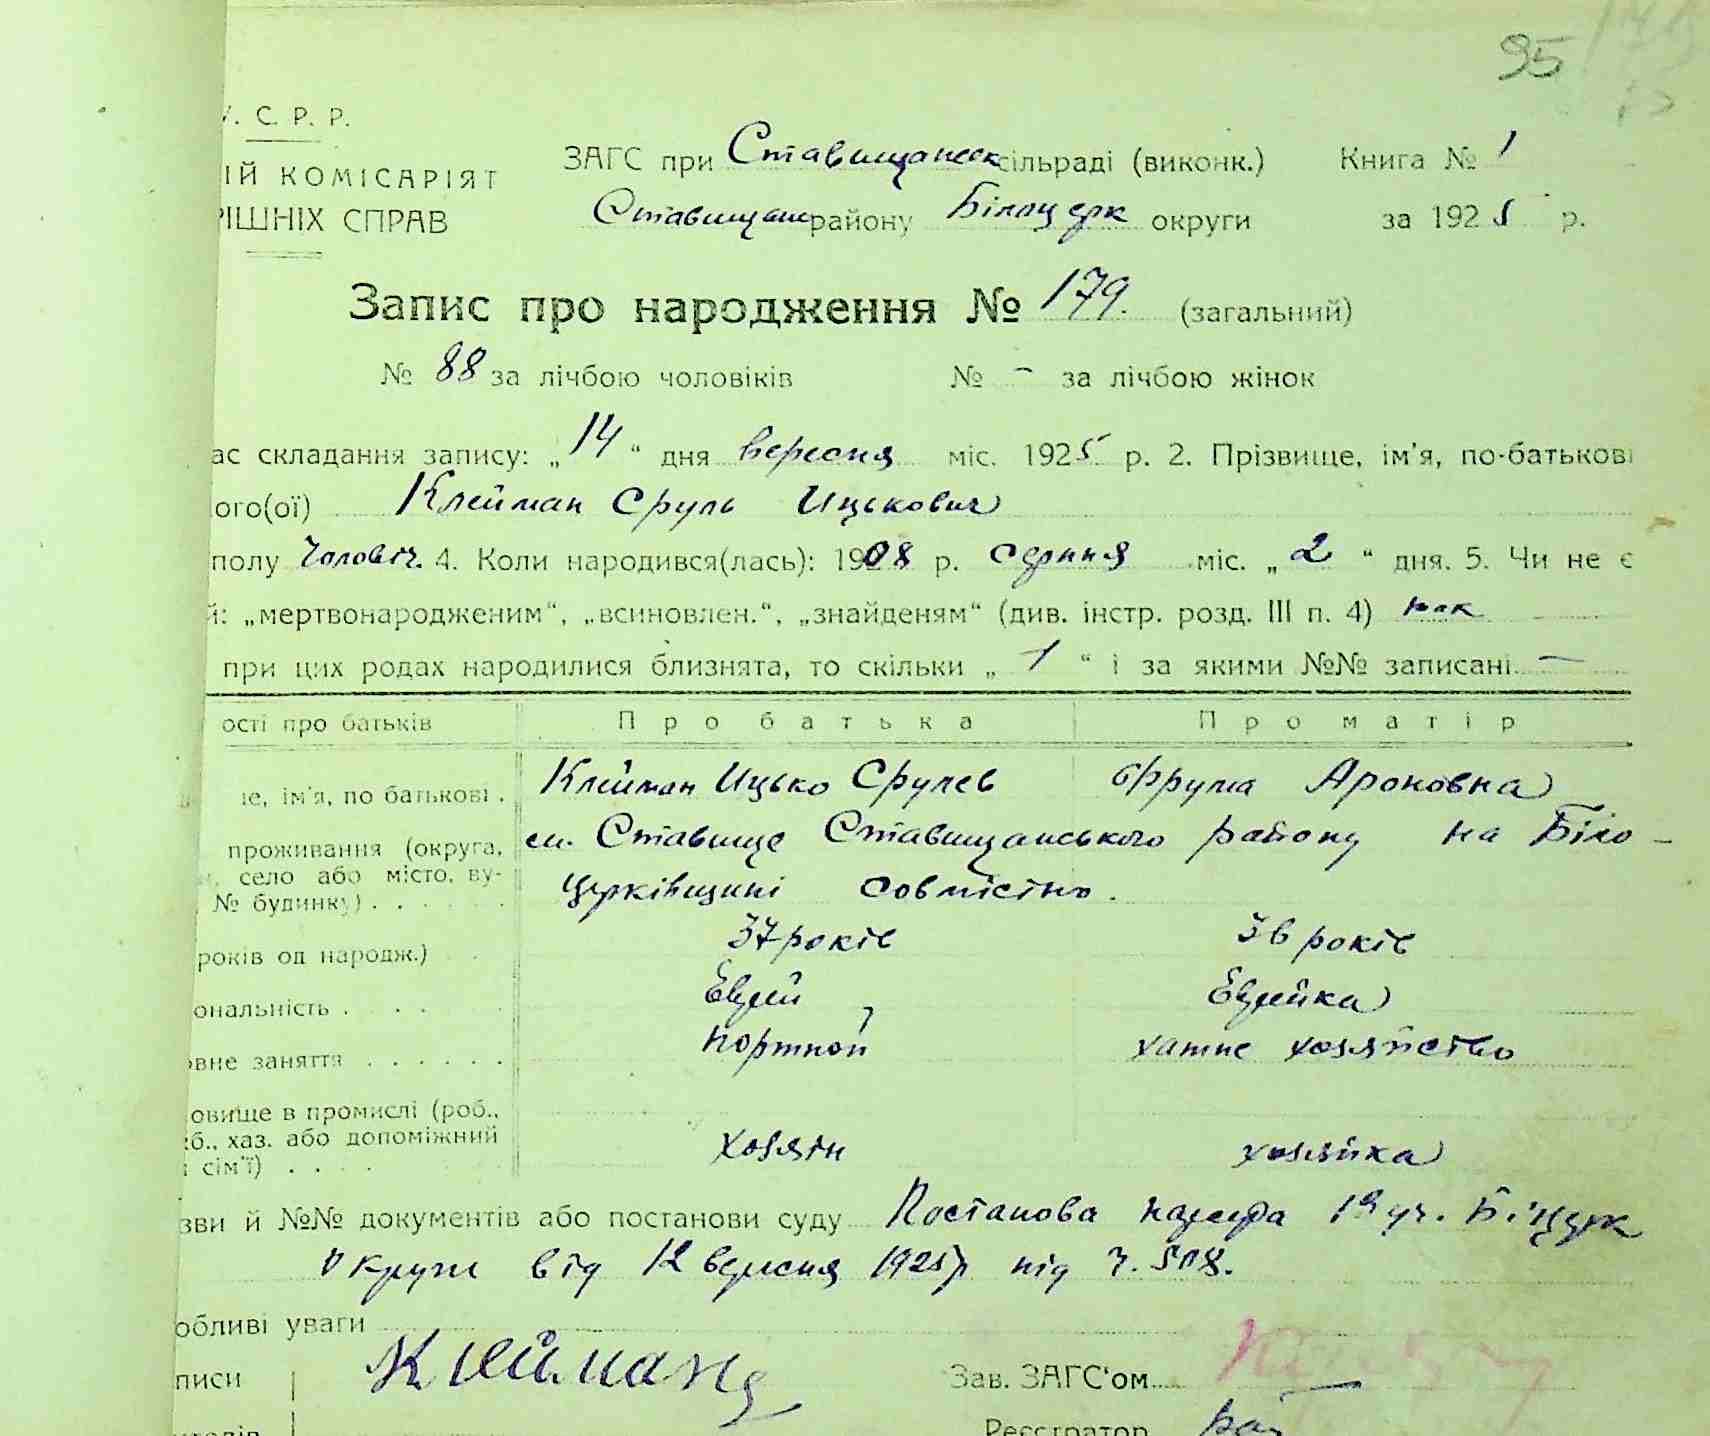 95
У. С. Р. Р.
ЗАГС при Ставищанск сільраді (виконк.) Книга № 1
ІЙ КОМІСАРІЯТ
РІШНІХ СПРАВ
Ставищан району Білоцерк округи за 1925 р.
Запис про народження № 179. (загальний)
№ 88 за лічбою чоловіків № - за лічбою жінок
ас складання запису: „14“ дня вересня міс. 1925 р. 2. Прізвище, ім'я, по-батькові
ого(ої) Клейман Сруль Ицькович
полу чоловіч. 4. Коли народився(лась): 1908 р. серпня міс. „2“ дня. 5. Чи не є
й: „мертвонародженим“, „всиновлен.“, „знайденям“ (див. інстр. розд. III п. 4)
при цих родах народилися близнята, то скільки „1“ і за якими №№ записані —
ості про батьків Про батька Про матір
ім'я, по батькові . Клейман Ицько Срулев Фрума Ароновна
проживання (округа, см. Ставище Ставищанського району на Біло-
село або місто, ву-
№ будинку) . . . . . Церківщині совмістно.
років од народж.) 37 років 36 років
ональність . . . . Еврей Еврейка
овне заняття . . . . . . портной хатне хозяйство
овище в промислі (роб.,
б., хаз. або допоміжний
сім'ї) . . . . хозяїн хозяйка
зви й №№ документів або постанови суду Постанова нарсуда 19 уч. Б.Церк
округи від 12 вересня 1925 р під ч. 508.
обливі уваги
писи Клейман Зав. ЗАГС'ом
Реєстратор